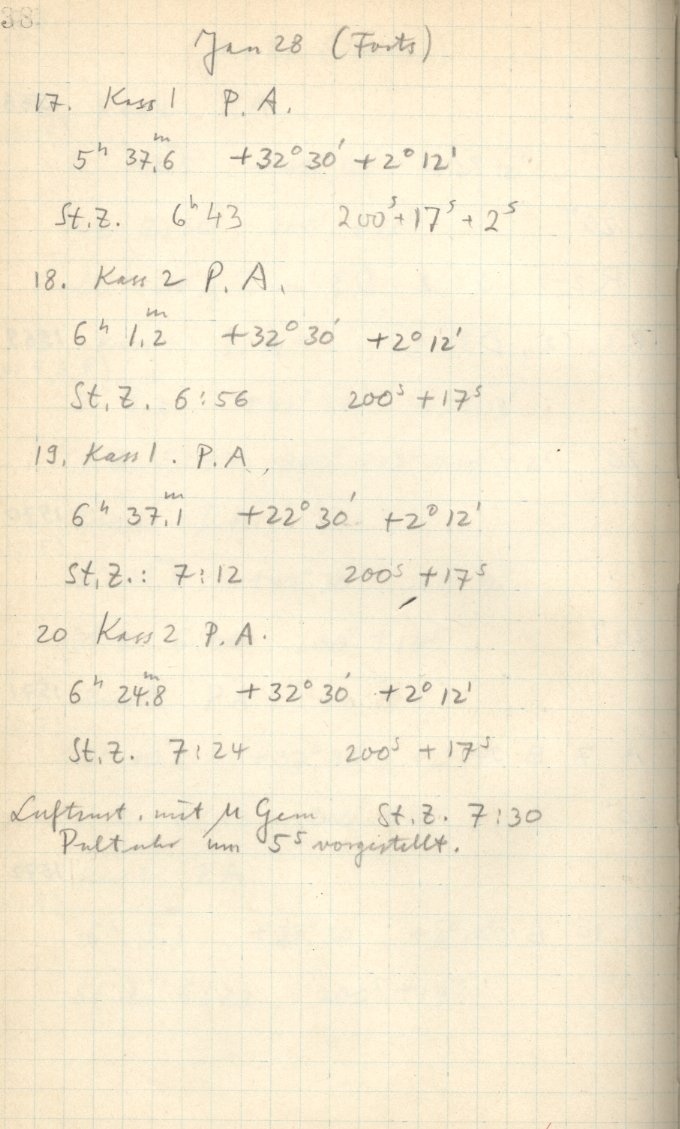 33
Jan 28 (Forts)
17. Kass 1 P. A.
5ʰ 37,6ᵐ +32° 30' +2° 12'
St. Z. 6ʰ 43 200ˢ + 17ˢ + 2ˢ
18. Kass 2 P. A.
6ʰ 1,2ᵐ +32° 30' +2° 12'
St. Z. 6:56 200ˢ + 17ˢ
19. Kass 1. P. A.
6ʰ 37,1ᵐ +22° 30' +2° 12'
St. Z.: 7:12 200ˢ + 17ˢ
20 Kass 2 P. A.
6ʰ 24,8ᵐ +32° 30' +2° 12'
St. Z. 7:24 200ˢ + 17ˢ
mit μ Gem St. Z. 7:30
Pultuhr um 5ˢ vorgestellt.